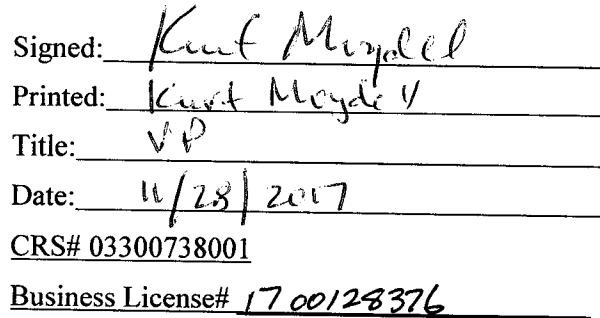 Signed: Kurt Moydell
Printed: Kurt Moydell
Title: VP
Date: 11/28/2017
CRS# 03300738001
Business License# 1700128376